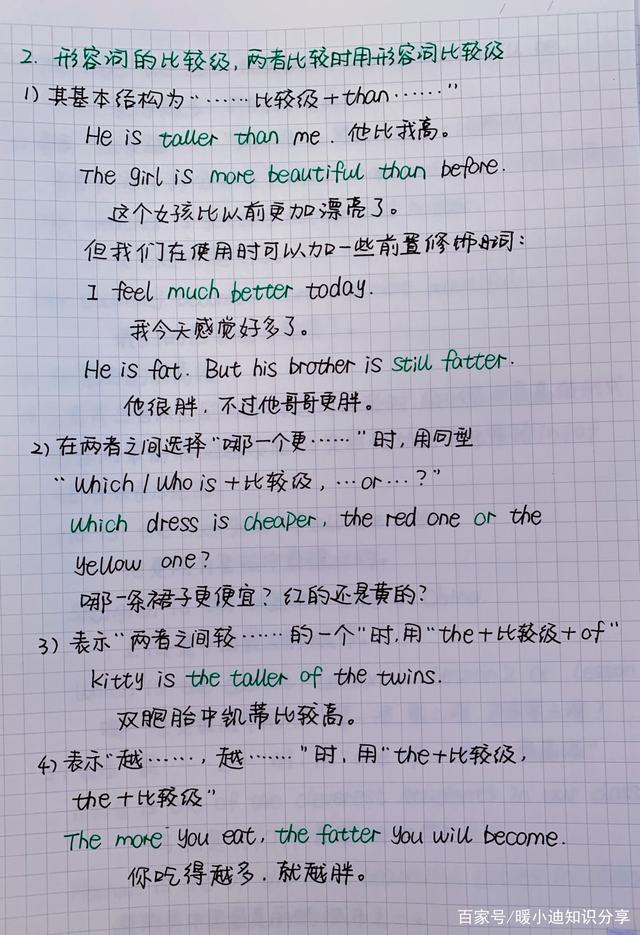 2. 形容词的比较级,两者比较时用形容词比较级
1) 其基本结构为“……比较级+than……”
He is taller than me. 他比我高。
The girl is more beautiful than before.
这个女孩比以前更加漂亮了。
但我们在使用时可以加一些前置修饰词:
I feel much better today.
我今天感觉好多了。
He is fat. But his brother is still fatter.
他很胖,不过他哥哥更胖。
2) 在两者之间选择“哪一个更……”时,用句型
“Which / Who is +比较级,…or…?”
Which dress is cheaper, the red one or the
yellow one?
哪一条裙子更便宜?红的还是黄的?
3) 表示“两者之间较……的一个”时,用“the+比较级+of”
Kitty is the taller of the twins.
双胞胎中凯蒂比较高。
4) 表示“越……,越……”时,用“the+比较级,
the+比较级”
The more you eat, the fatter you will become.
你吃得越多,就越胖。
百家号/暖小迪知识分享